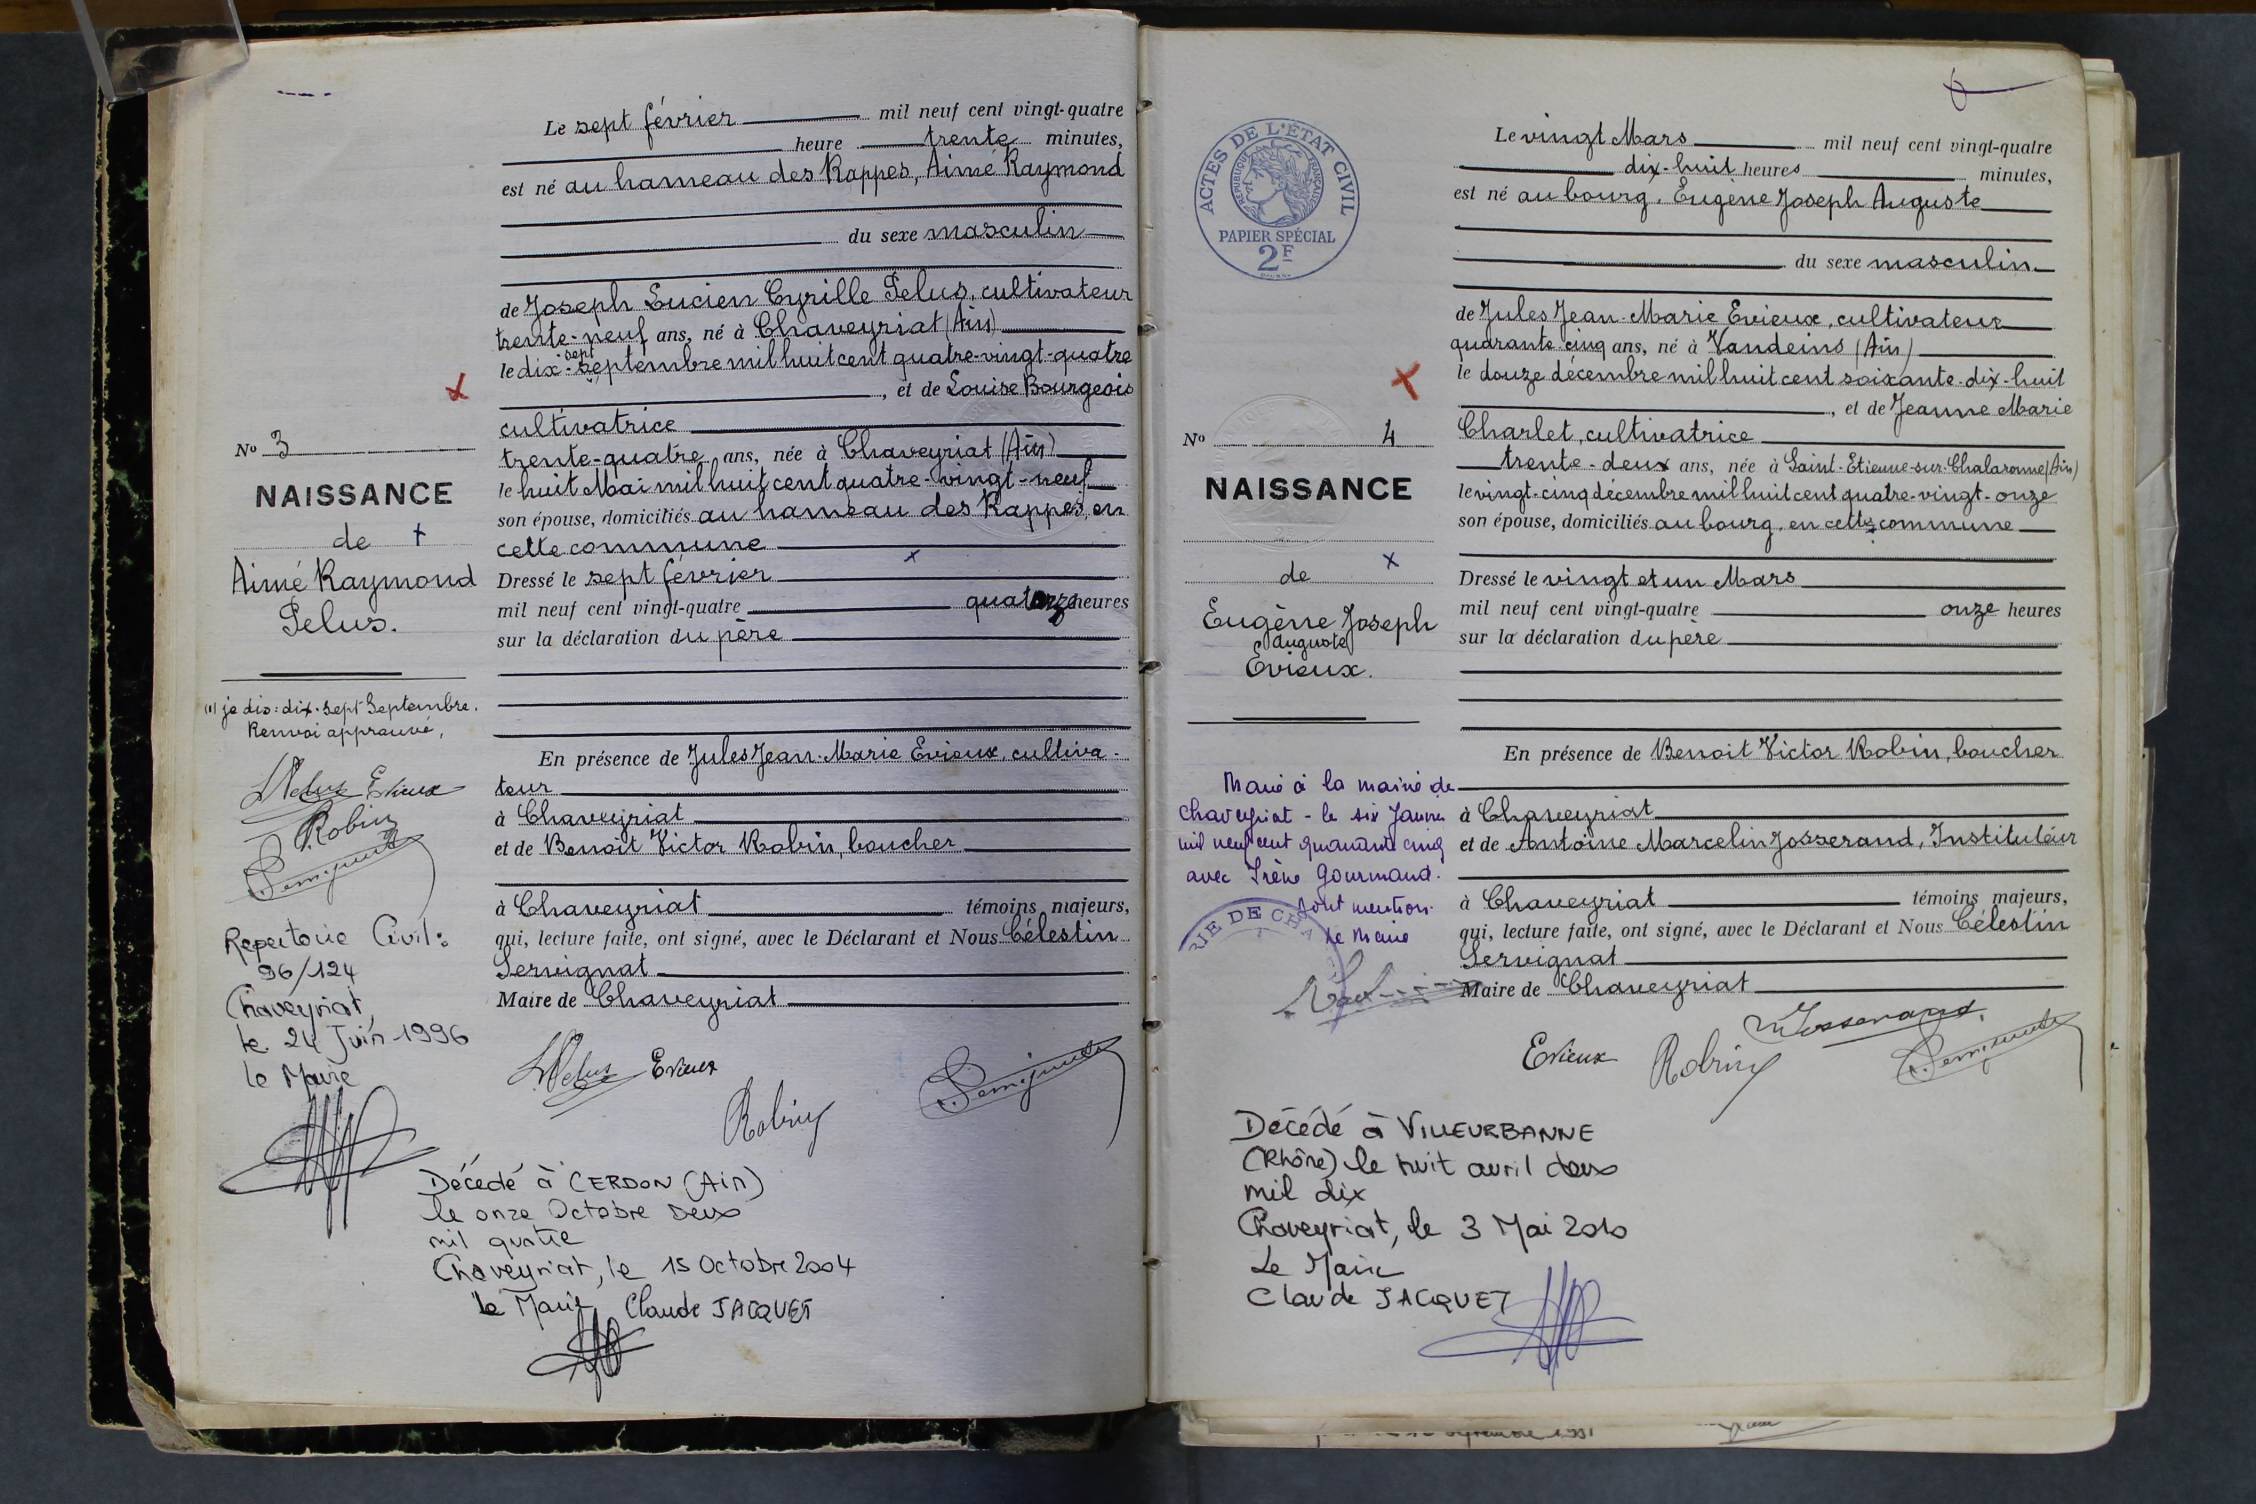 Le sept février mil neuf cent vingt-quatre
heure trente minutes,
est né au hameau des Rappes, Aimé Raymond
du sexe masculin
de Joseph Lucien Cyrille Pelus, cultivateur
trente-neuf ans, né à Chaveyriat (Ain)
sept
le dix-septembre mil huit cent quatre-vingt-quatre
, et de Louise Bourgeois
cultivatrice
trente-quatre ans, née à Chaveyriat (Ain)
le huit Mai mil huit cent quatre-vingt-neuf
son épouse, domiciliés au hameau des Rappes, en
cette commune
Dressé le sept février
mil neuf cent vingt-quatre quatorze heures
sur la déclaration du père
En présence de Jules Jean-Marie Evieux, cultiva-
teur
à Chaveyriat
et de Benoit Victor Robin, boucher
à Chaveyriat témoins majeurs,
qui, lecture faite, ont signé, avec le Déclarant et Nous Célestin
Servignat
Maire de Chaveyriat
Pelus Evieux
Robin
Nº 3
NAISSANCE
de
Aimé Raymond
Pelus.
(1) je dis: dix-sept Septembre.
Renvoi approuvé,
Pelus Evieux
Robin
Repertoire Civil:
96/124
Chaveyriat,
le 24 Juin 1996
le Maire
Décédé à CERDON (Ain)
le onze Octobre Deux
mil quatre
Chaveyriat, le 15 Octobre 2004
le Maire, Claude JACQUET
6
ACTES DE L'ÉTAT CIVIL
RÉPUBLIQUE FRANÇAISE
PAPIER SPÉCIAL
2F
Le vingt Mars mil neuf cent vingt-quatre
dix-huit heures minutes,
est né au bourg, Eugène Joseph Auguste
du sexe masculin
de Jules Jean-Marie Evieux, cultivateur
quarante-cinq ans, né à Vandeins (Ain)
le douze décembre mil huit cent soixante-dix-huit
, et de Jeanne Marie
Charlet, cultivatrice
trente-deux ans, née à Saint-Etienne-sur-Chalaronne (Ain)
le vingt-cinq décembre mil huit cent quatre-vingt-onze
son épouse, domiciliés au bourg, en cette commune
Dressé le vingt et un Mars
mil neuf cent vingt-quatre onze heures
sur la déclaration du père
En présence de Benoit Victor Robin, boucher
à Chaveyriat
et de Antoine Marcelin Josserand, Instituteur
à Chaveyriat témoins majeurs,
qui, lecture faite, ont signé, avec le Déclarant et Nous Célestin
Servignat
Maire de Chaveyriat
Josserand
Evieux Robin
Nº 4
NAISSANCE
de
Eugène Joseph
Auguste
Evieux.
Marié à la mairie de
Chaveyriat - le six Janvier
mil neuf cent quarante cinq
avec Irène Gourmand.
dont mention.
Le Maire
RIE DE CHA
Décédé à VILLEURBANNE
(Rhône) le huit avril deux
mil dix
Chaveyriat, le 3 Mai 2010
Le Maire
Claude JACQUET